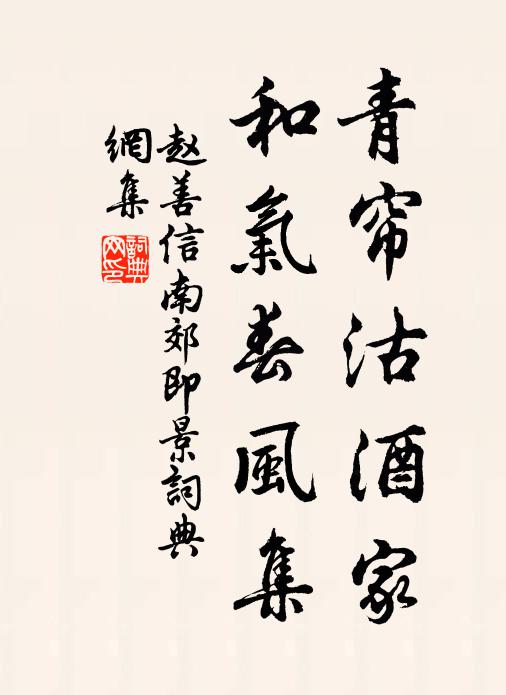 青帘沽酒家
和氣春風集
赵善信南郊即景詞典
網集
詞典
网印